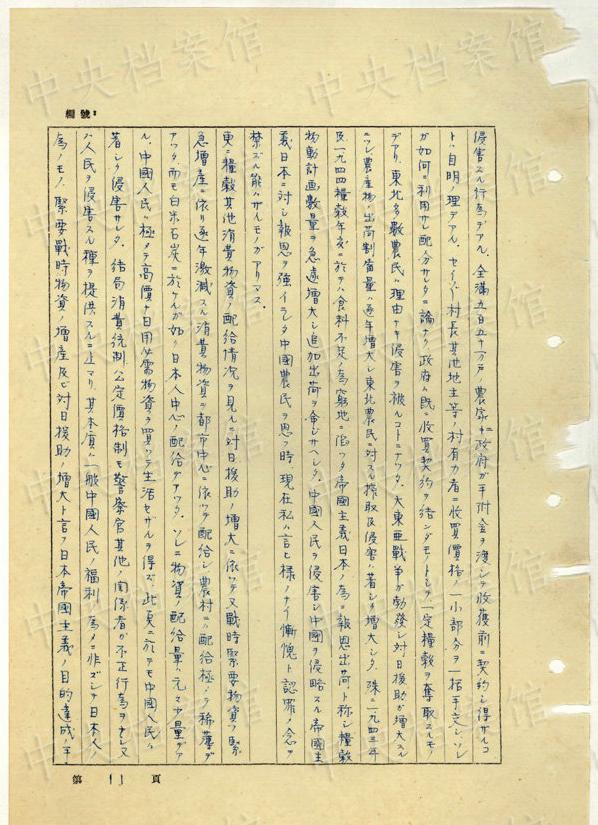 中央档案馆
編號：
侵害スル行為デアル、全滿五百五十万戸ノ農家ニ政府ガ手附金ヲ渡シテ收獲前ニ契約シ得ザルコ
トハ自明ノ理デアル、セイゼイ村長其他地主等ノ村有力者ニ收買價格ノ一小部分ヲ一括手交シソレ
ガ如何ニ利用サレ配分サレタニ論ナク政府ハ既ニ收買契約ヲ結ンダモノトシテ一定糧穀ヲ奪取スルモノ
デアリ、東北多數農民ハ理由ナキ侵害ヲ被ルコトニナツタ、大東亜戰爭ガ勃發シ対日援助ガ增大スル
ニツレ農產物ノ出荷割當量ハ逐年增大シ東北農民ニ対スル搾取及侵害ハ著シク增大シタ、殊ニ一九四三年
及一九四四糧穀年度ニ於テハ食料不足ノ為窮地ニ陷ツタ帝國主義日本ノ為ニ報恩出荷ト称シ糧穀
物動計画數量ヲ急遽增大シ追加出荷ヲ命ジサヘシタ、中國人民ヲ侵害シ中國ヲ侵略スル帝國主
義日本ニ対シ報恩ヲ強イラレタ中國農民ヲ思フ時、現在私ハ言ヒ樣ノナイ慚愧ト認罪ノ念ヲ
禁ズル能ハザルモノガアリマス、
更ニ糧穀其他消費物資ノ配給情況ヲ見ルニ対日援助ノ增大ニ依ツテ又戰時緊要物資ノ緊
急增產ニ依リ逐年激減スル消費物資ハ都市中心ニ依ツテ配給シ農村ニハ配給極メテ稀薄デ
アツタ、而モ白米石炭ニ於ケルガ如ク日本人中心ノ配給デアツタ、ソレニ物資ノ配給量ハ元々少量デア
ル、中國人民ハ極メテ高價ナ日用必需物資ヲ買ツテ生活セザルヲ得ズ、此頁ニ於テモ中國人民ハ
著シク侵害サレタ、結局消費統制公定價格制モ警察官其他ノ関係者ガ不正行為ヲナシ又
ハ人民ヲ侵害スル種ヲ提供スルニ止マリ、其本質ハ一般中國人民ノ福利ノ為メニ非ズシテ日本人ノ
為ノモノ、緊要戰時物資ノ增產及ビ対日援助ノ增大ト言フ日本帝國主義ノ目的達成ノ手
第 11 頁